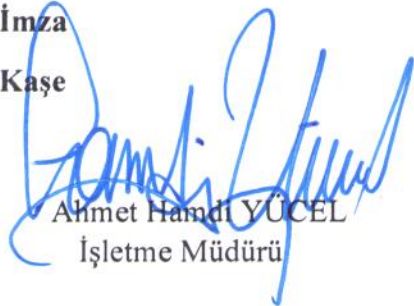 İmza
Kaşe
Ahmet Hamdi YÜCEL
İşletme Müdürü